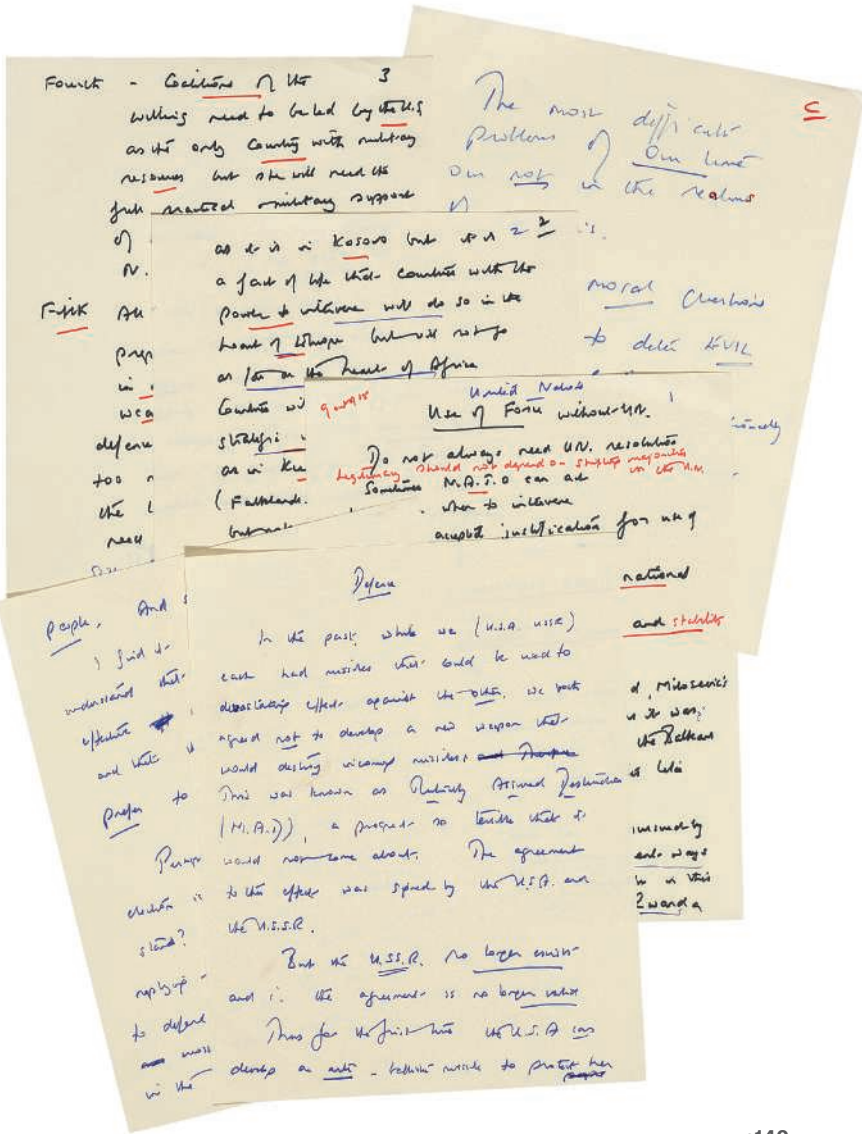 Fourth - Coalitions of the 3
willing need to be led by the U.S
as the only Country with military
resources but she will need the
full practical military support
of
N.
Fifth All
prep
in
wea
defence
too
the
need
The most difficult C
problems of Our time
are not in the realms
of
is.
moral Questions
to deter EVIL
as it is in Kosovo but it is 2 2
a fact of life that countries with the
power to intervene will do so in the
heart of Europe but will not go
as far as the heart of Africa
Countries wi
strategic
as in Ku
(Falklands.
but not
United Nations 1
Use of Force without UN.
Do not always need UN. resolution
Legitimacy should not depend on shifting majorities
in the U.N.
Sometimes N.A.T.O can act
when to intervene
accepted justification for use of
national
and stability
d, Milosevic's
as it was,
the Balkans
ways
in this
Rwanda
people. And s
I find it
understand that
effective
and that
prefer to
Perhaps
election is
stand?
replying -
to defend
most
in the
Defence
In the past, while we (U.S.A. USSR)
each had missiles that could be used to
devastating effect against the other, we both
agreed not to develop a new weapon that
would destroy incoming missiles
This was known as Mutually Assured Destruction
(M.A.D), a prospect so terrible that it
would not come about. The agreement
to this effect was signed by the U.S.A. and
the U.S.S.R.
But the U.S.S.R. no longer exists
and the agreement is no longer valid
Thus for the first time the U.S.A can
develop an anti-ballistic missile to protect her